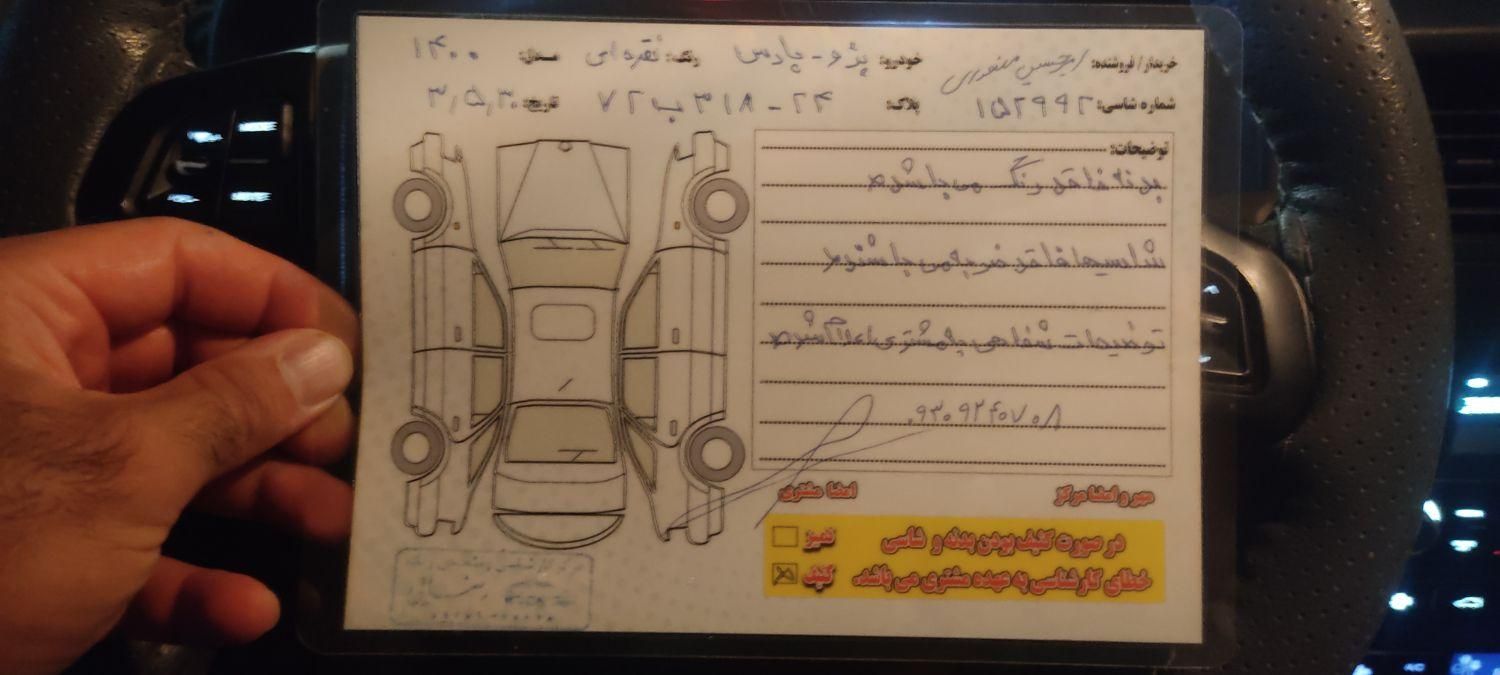 خریدار/فروشنده: امیرحسین منصوری خودرو: پژو - پارس رنگ: نقره ای مدل: ۱۴۰۰
شماره شاسی: ۱۵۲۹۹۲ پلاک: ۲۴ - ۳۱۸ ب ۷۲ تاریخ: ۳,۵,۳۰
توضیحات:
بدنه فاقد رنگ می باشد
شاسیها فاقد ضربه می باشند
توضیحات شفاهی به مشتری اعلام شد
۰۹۳۰۹۲۴۰۷۰۸
مهر و امضا مرکز امضا مشتری
در صورت کثیف بودن بدنه و شاسی
خطای کارشناسی به عهده مشتری می باشد.
تمیز
کثیف